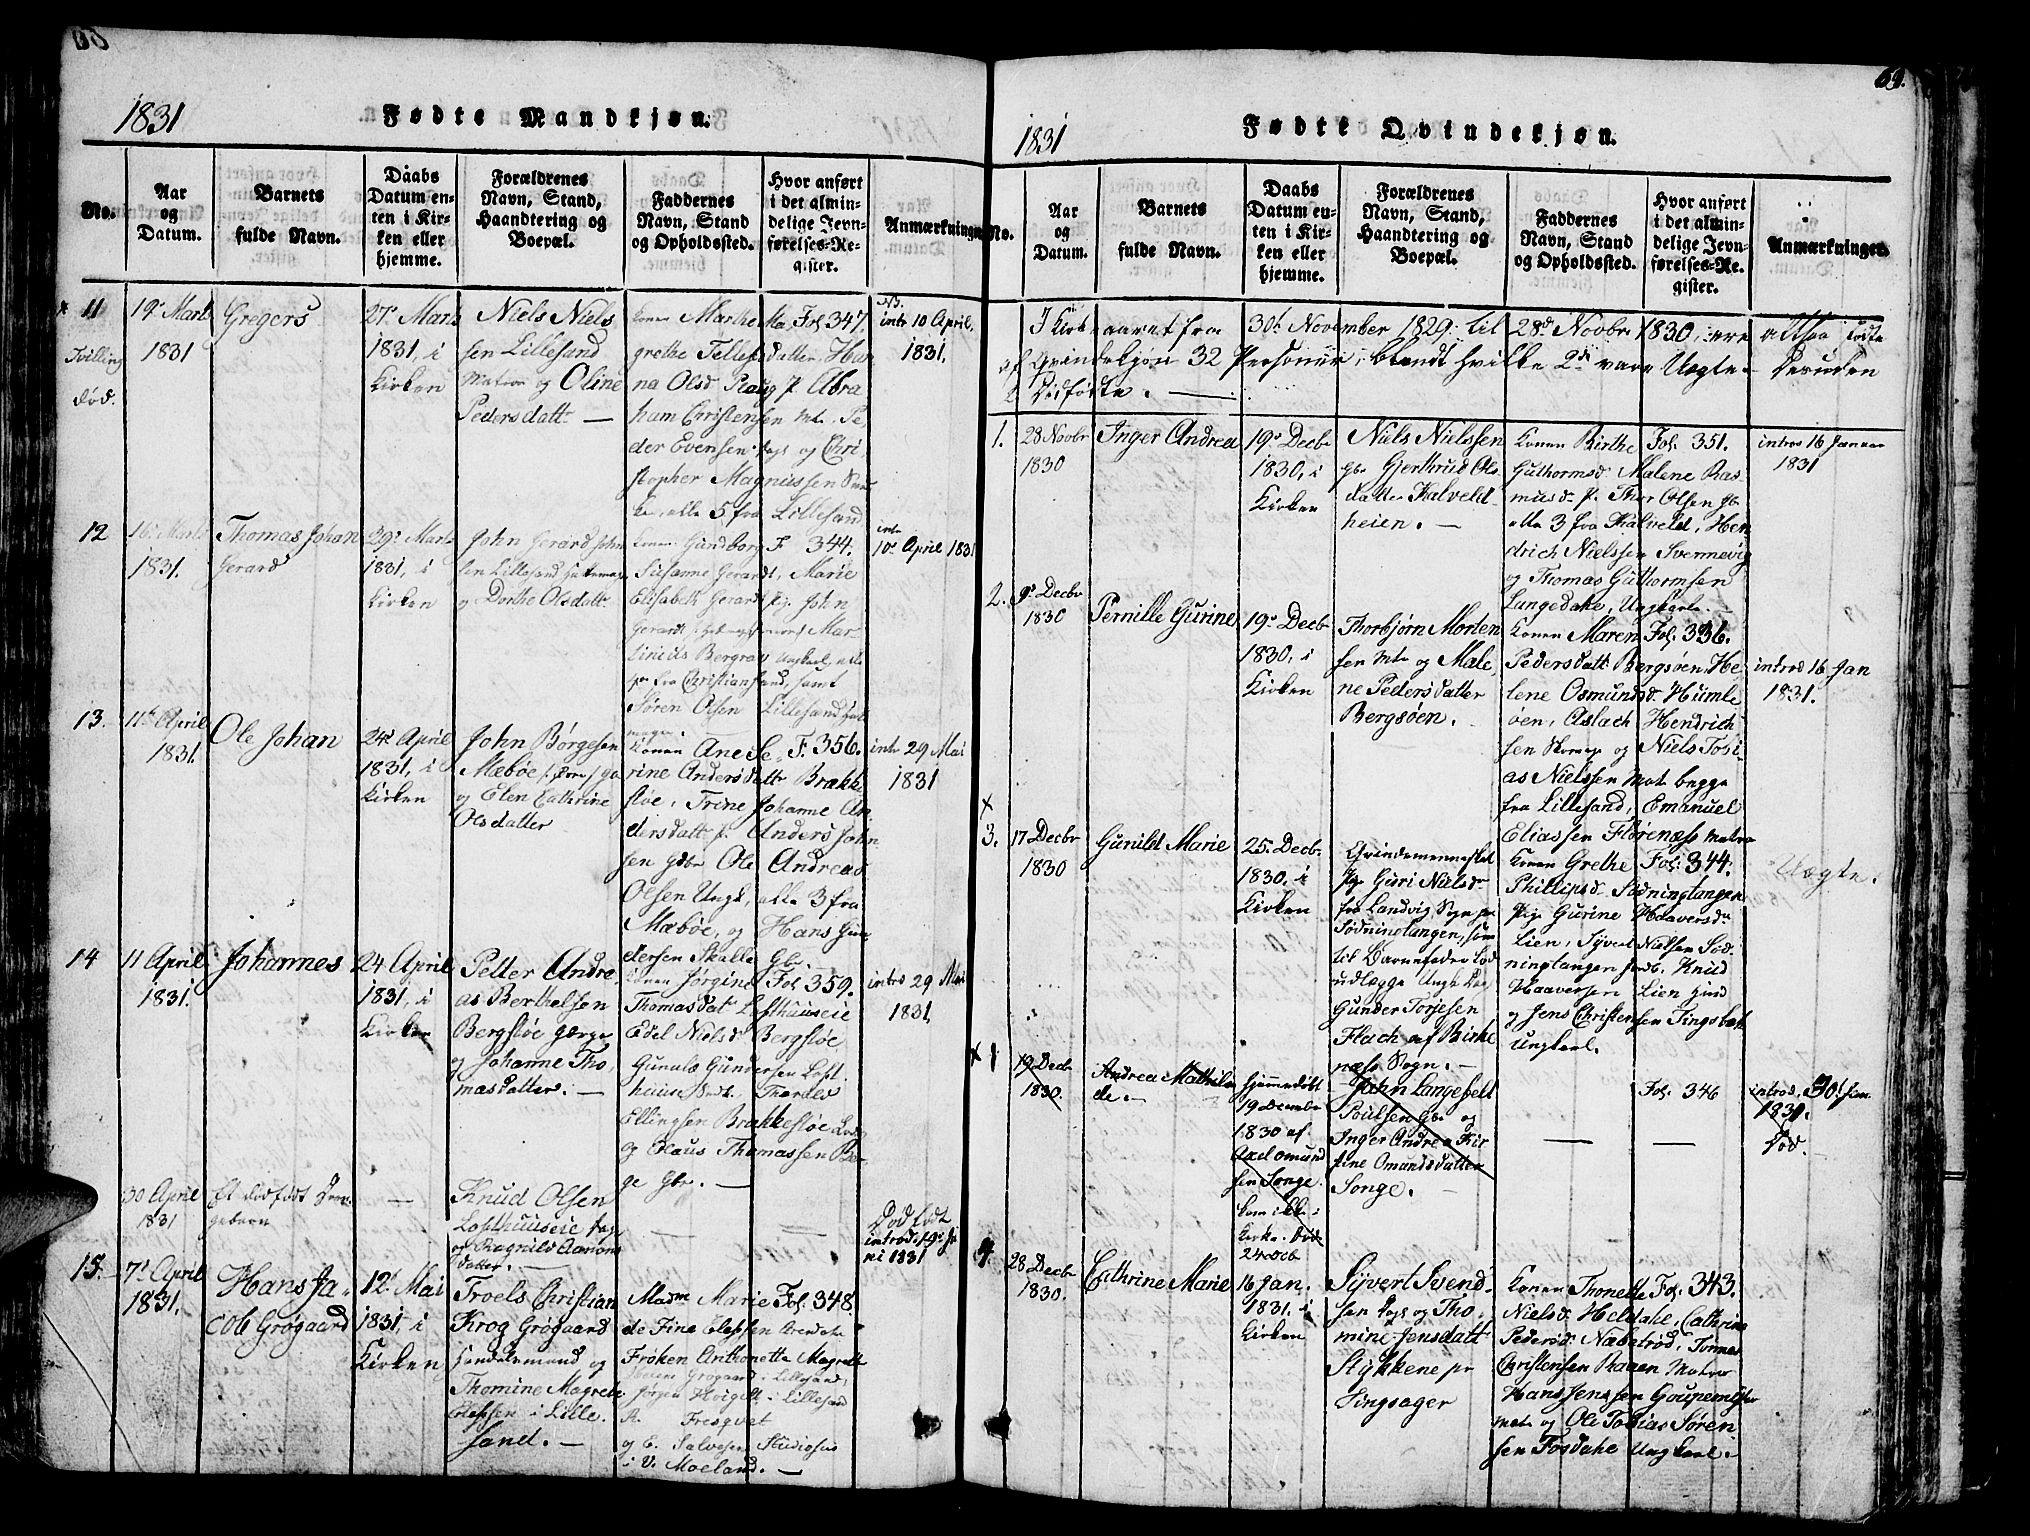 68
1831
Fødte Mandkjøn.
No.
Aar og Datum.
Barnets fulde Navn.
Daabs Datum enten i Kirken eller hjemme.
Forældrenes Navn, Stand, Haandtering og Boepæl.
Faddernes Navn, Stand og Opholdssted.
Hvor anført i det almindelige Jevnførelses-Register.
Anmærkninger
11
Tvilling
død.
19 Marts
1831
Gregers
27 Marts
1831, i
Kirken
Niels Niels
sen Lillesand
Matros og Oline
Pedersdatt —
Konen Marthe Ma
grethe Tellefsdatter Han
na Olsd Plaug P. Abra
ham Christensen mt. Pe
der Evensen dags og Chri
stopher Magnussen
alle 5 fra Lillesand
Fol 347.
NB.
intr 10 April.
1831.
12
16 Marts
1831.
Thomas Johan
Gerard
29 Marts
1831, i
Kirken
John Gerard John
sen Lillesand
og Dorthe Olsdatt
Konen Gundborg
Susanne Gerardt, Marie
Elisabeth Gerardt Pige John
Gerardt
Mar
tinius Bergrav Ungkarl, alle
fra Christiansand, samt
Søren Olsen Lillesand
F. 344.
intr
10 April 1831
13.
11 April
1831.
Ole Johan
24 April
1831, i
Kirken
John Børgesen
Mæbøe
og Elen Cathrine
Olsdatter
Konen Ane Se
rine Andersdatte Brække
støe, Trine Johanne An
dersdatt P. Anders John
sen Gbr Ole Andreas
Olsen Ungk, alle 3 fra
Mæbøe, og Hans Gun
dersen Skalle Gbr.
F. 356.
intr 29 Mai
1831
14
11 April
1831.
Johannes
24 April
1831, i
Kirken
Petter Andre
as Berthelsen
Bergstøe
og Johanne Tho
masdatter. —
Konen Jørgine
Thomasdat Lofthuuseie
Edel Nielsd Bergstøe
Gunuls Gundersen Loft
huus Thordes
Ellingsen Brækkestøe
og Claus Thomassen Ber
ge Gbr. —
Fol 359.
introd 29 Mai
1831.
30 April
1831
Et dødfødt Dren
gebarn
—
Knud Olsen
Lofthuuseie
og Ragnild Aanons
datter. —
Død født
introd. 19 Ju
ni 1831
15.
7 April
1831.
Hans Ja
cob Grøgaard
12 Mai
1831, i
Kirken
Troels Christian
Krog Grøgaard
Handelsmand og
Thomine Magrete
Elefsen i Lille
sand. —
Madm Marie
de Fine Elefsen Arendal
Frøken Anthonette Magrete
Grøgaard i Lillesand,
Jørgen Høigilt i Lillesand
R. Fresqvet
og E. Salvesen Studiosus
i V. Moeland. —
Fol. 348.
69.
1831
Fødte Qvindekjøn.
No.
Aar og Datum.
Barnets fulde Navn.
Daabs Datum enten i Kirken eller hjemme.
Forældrenes Navn, Stand, Haandtering og Boepæl.
Faddernes Navn, Stand og Opholdssted.
Hvor anført i det almindelige Jevnførelses-Register.
Anmærkninger.
I Kirkeaaret fra 30 November 1829 til 28d Novbr 1830, ere altsaa fødte
af Qvindekjøn 32 Personer, iblandt hvilke 2de vare Uægte — Desuden
2 Dødfødte. —
1.
28 Novbr
1830
Inger Andrea
19 Decb
1830, i
Kirken
Niels Nielssen
Gbr Gjerthrud Ols
datter Kalveld
heien. —
Konen Birthe
Guthormsd Malene Ras
musd P. Thor Olsen Gb
alle 3 fra Kalveld, Hen
drich Nielssen Svennevig
og Thomas Guthormsen
Langedahe, Ungkarle.
Fol. 351.
introd 16 Januar
1831
2.
9 Decbr
1830
Pernille Gurine
19 Decb
1830, i
Kirken
Thorbjørn Morten
sen mt og Male
ne Pedersdatter
Bergsøen.
Konen Maren
Pedersdatt Bergsøen, He
lene Osmundsd Humle
øen, Aslach Hendrich
sen og Niels Tobi
as Nielssen Mat begge
fra Lillesand, Emanuel
Eliassen Florenæss Matro
Fol. 336.
introd 16 Jan
1831.
3.
17 Decbr
1830
Gunild Marie
25 Decb.
1830, i
Kirken
Qvindemennesket
Pige Guri Nielsd
fra Landvig Sogn
Sødningtangen, som
til Barnefader
udlægge Ungk
Gunder Torjesen
Flach af Birke
næss Sogn. —
Konen Grethe
Phillipsd Sødningtangen
Pige Gurine Haaversd
Lien, Syvert Nielsen Sød
ningtangen Knud
Haaversen Lien
og Jens Christensen Tingsbek
Ungkarl.
Fol. 344.
Uægte.
1
19 Decb
1830.
Andrea Mathil
de. —
hjemmedøbt
19 December
1830 af
Axel Omund
sen Songe.
kom ikke i
Kirke. Død
24 Dcb
John Langefelt
Poulsen Gbr og
Inger Andrea Kir
stine Omundsdatter
Songe.
—
Fol. 346
—
introd. 30 Jan.
1831.
Død.
4.
28 Decb
1830.
Cathrine Marie
16 Jan.
1831. i
Kirken
Syvert Svend
sen dags og Tho
mine Jensdatt
Stykkene pr
Tingsager
Konen Thonette
Nielsd. Heldale, Cathrine
Pedersd. Næbetrød, Tormas
Christensen Raaen Matro
Hans Jenssen Goupemyhr
mat og Ole Tobias Søren
sen Fosdahe Ungkarl. —
Fol. 343.